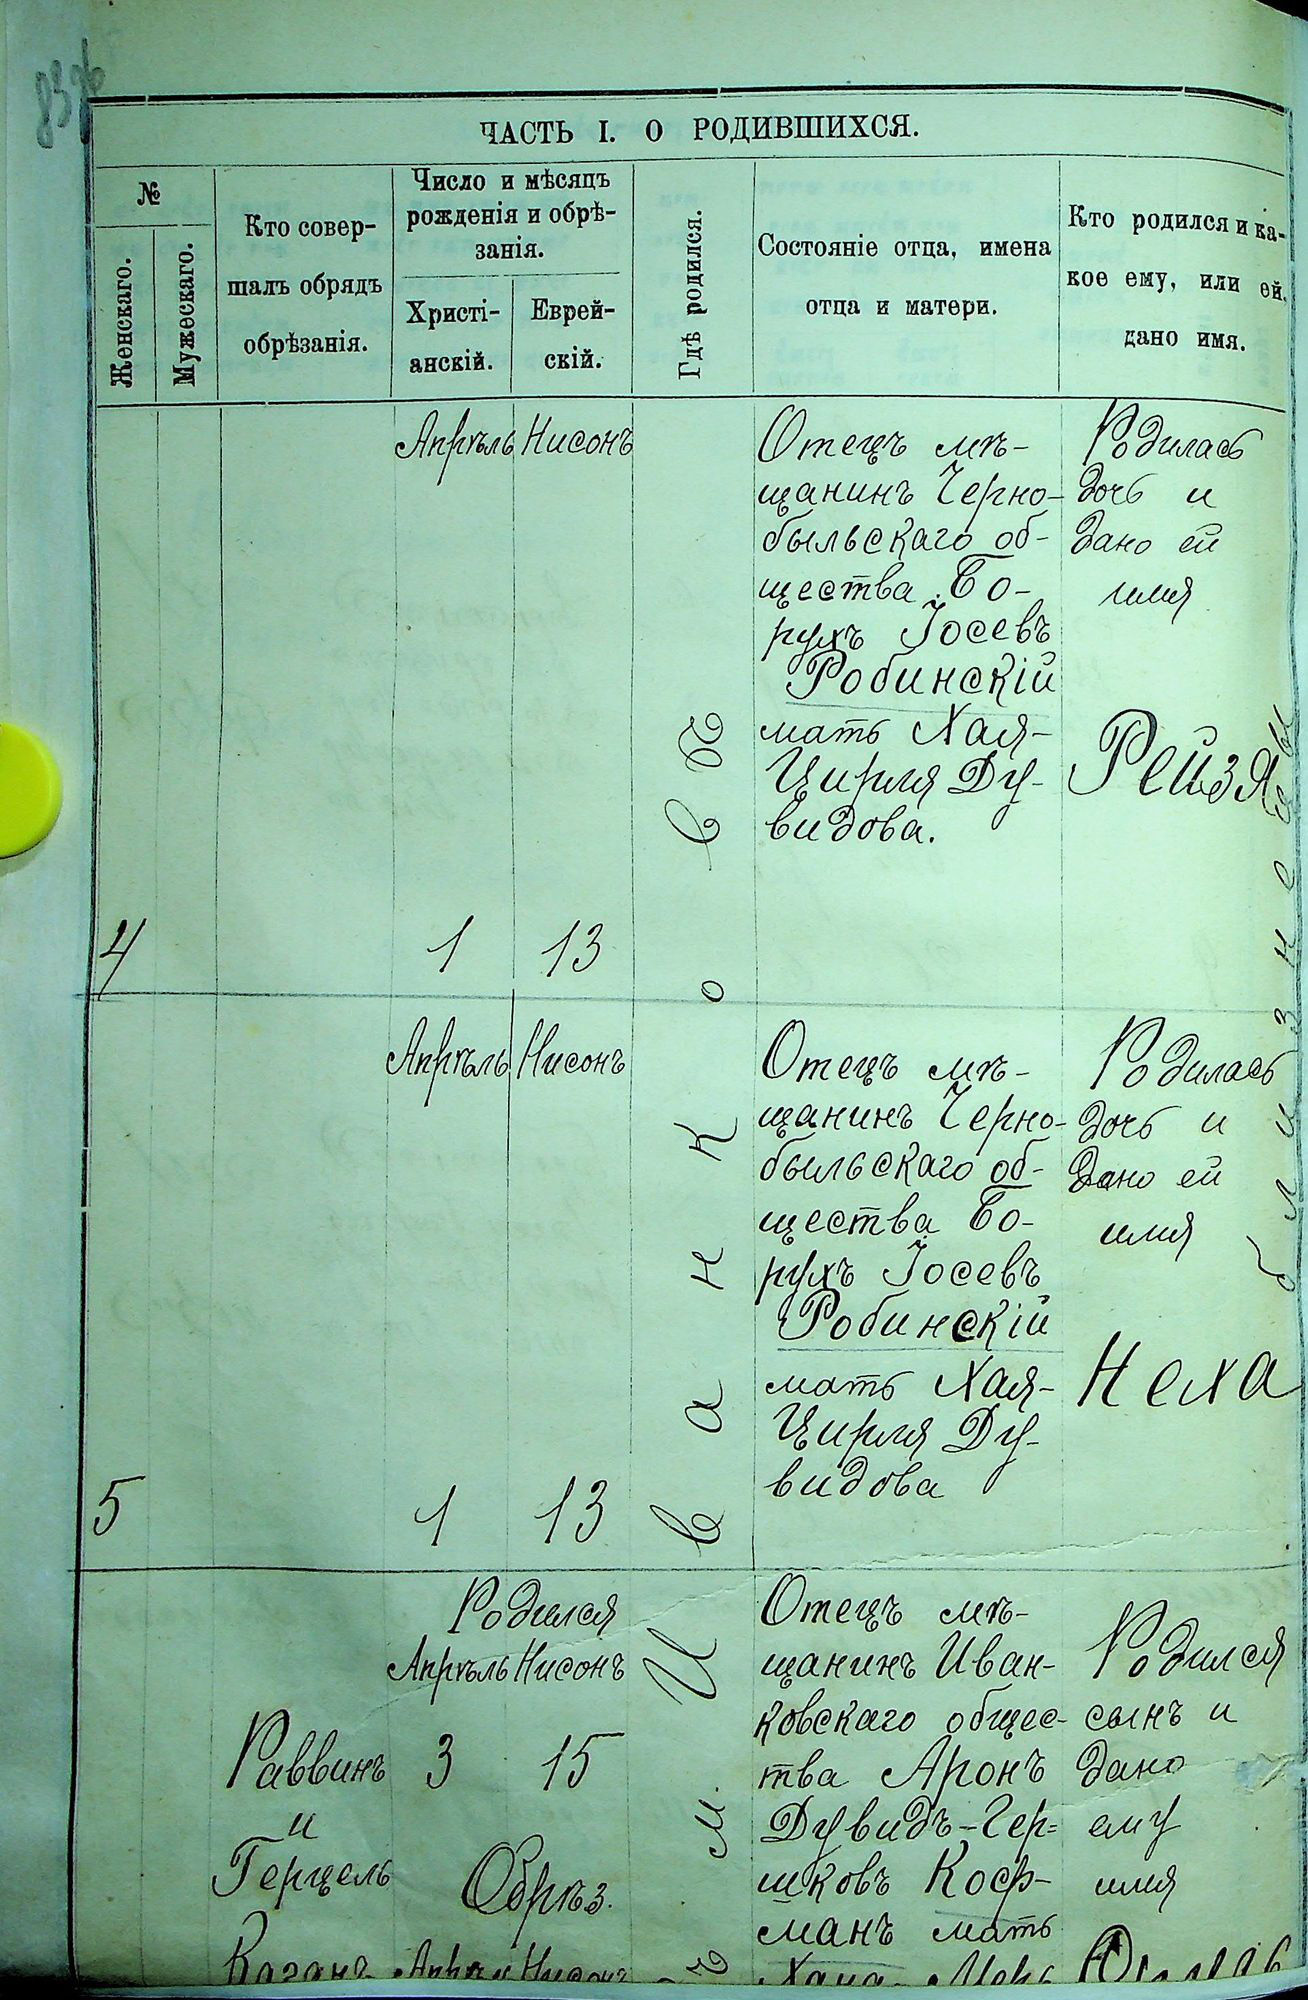 ЧАСТЬ I. О РОДИВШИХСЯ.
№
Женскаго.
Мужескаго.
Кто совер-
шалъ обрядъ
обрѣзанія.
Число и мѣсяцъ
рожденія и обрѣ-
занія.
Христі-
анскій.
Еврей-
скій.
Гдѣ родился.
Состояніе отца, имена
отца и матери.
Кто родился и ка-
кое ему, или ей,
дано имя.
4
Апрѣль
1
Нисонъ
13
Отецъ мѣ-
щанинъ Черно-
быльскаго об-
щества Бо-
рухъ Іосевъ
Робинскій
мать Хая-
Цирля Ду-
видова.
Родилась
дочь и
дано ей
имя
Рейзя
близнецы
м. Иванково
5
Апрѣль
1
Нисонъ
13
Отецъ мѣ-
щанинъ Черно-
быльскаго об-
щества Бо-
рухъ Іосевъ
Робинскій
мать Хая-
Цирля Ду-
видова
Родилась
дочь и
дано ей
имя
Неха
Раввинъ
и
Герцель
Каганъ
Родился
Апрѣль Нисонъ
3 15
Обрѣз.
Апрѣл Нисонъ
Отецъ мѣ-
щанинъ Иван-
ковскаго общес-
тва Аронъ
Дувидъ-Гер=
шковъ Коф-
манъ мать
Хана
Родился
сынъ и
дано
ему
имя